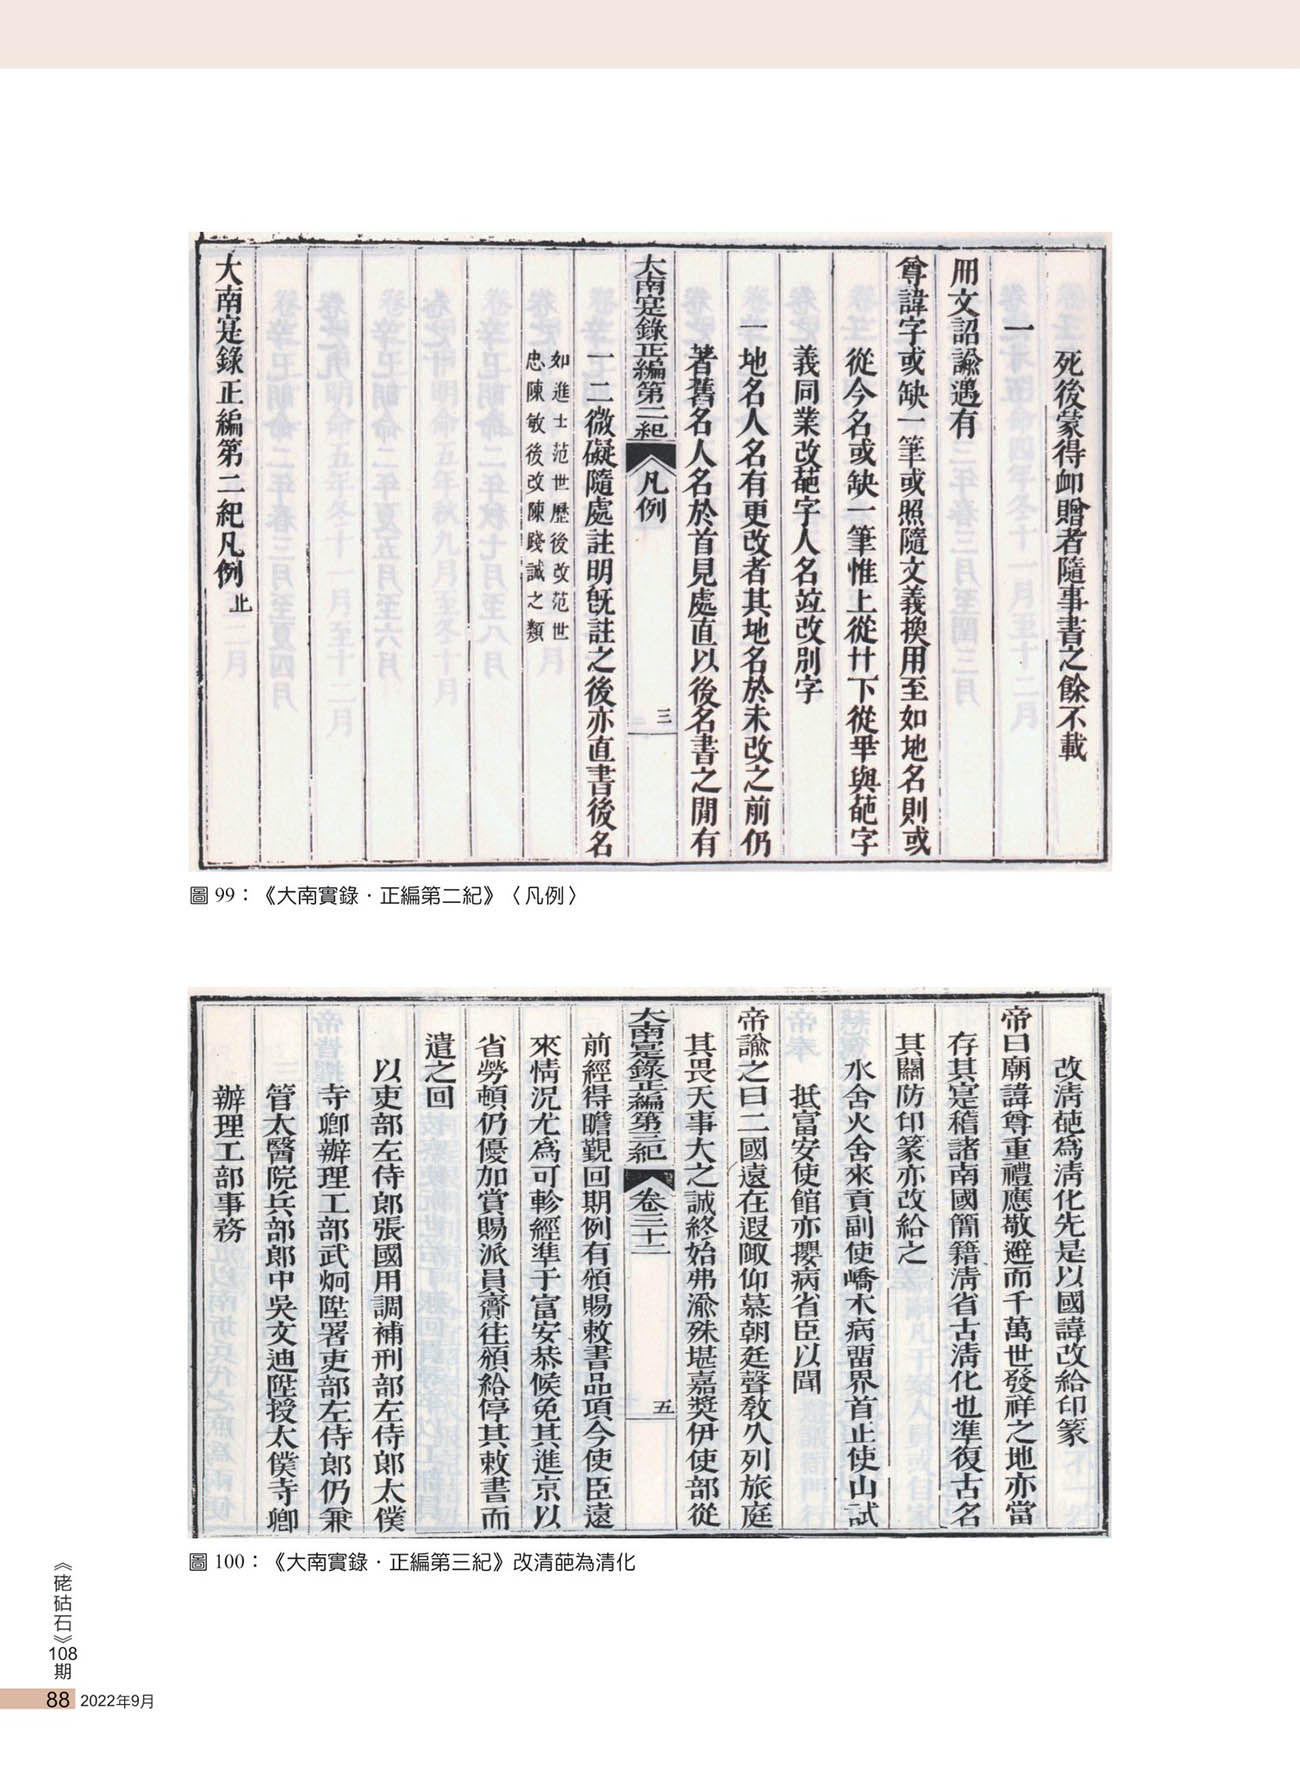 死後蒙得卹贈者隨事書之餘不載
一
用文詔諭遇有
尊諱字或缺一筆或照隨文義換用至如地名則或
從今名或缺一筆惟上從廾下從毕與葩字
義同業改葩字人名竝改別字
一地名人名有更改者其地名於未改之前仍
著舊名人名於首見處直以後名書之閒有
大南寔錄正編第二紀
凡例
三
一二微礙隨處註明旣註之後亦直書後名
如進士范世歷後改范世
忠陳敏後改陳踐誠之類
大南寔錄正編第二紀凡例止
圖 99：《大南實錄．正編第二紀》〈凡例〉
改淸葩爲淸化先是以國諱改給印篆
帝曰廟諱尊重禮應敬避而千萬世發祥之地亦當
存其寔稽諸南國簡籍淸省古淸化也準復古名
其關防印篆亦改給之
水舍火舍來貢副使嶠木病畱界首止使山試
抵富安使館亦攖病省臣以聞
帝諭之曰二國遠在遐陬仰慕朝廷聲敎久列旅庭
其畏天事大之誠終始弗渝殊堪嘉奬伊使部從
大南寔錄正編第三紀
卷三十二
五
前經得瞻覲回期例有頒賜敕書品項今使臣遠
來情況尤爲可軫經準于富安恭候免其進京以
省勞頓仍優加賞賜派員齎往頒給停其敕書而
遣之回
以吏部左侍郎張國用調補刑部左侍郎太僕
寺卿辦理工部武炯陞署吏部左侍郎仍兼
管太醫院兵部郎中吳文迪陞授太僕寺卿
辦理工部事務
圖 100：《大南實錄．正編第三紀》改清葩為清化
《硓𥑮石》108期
88 2022年9月